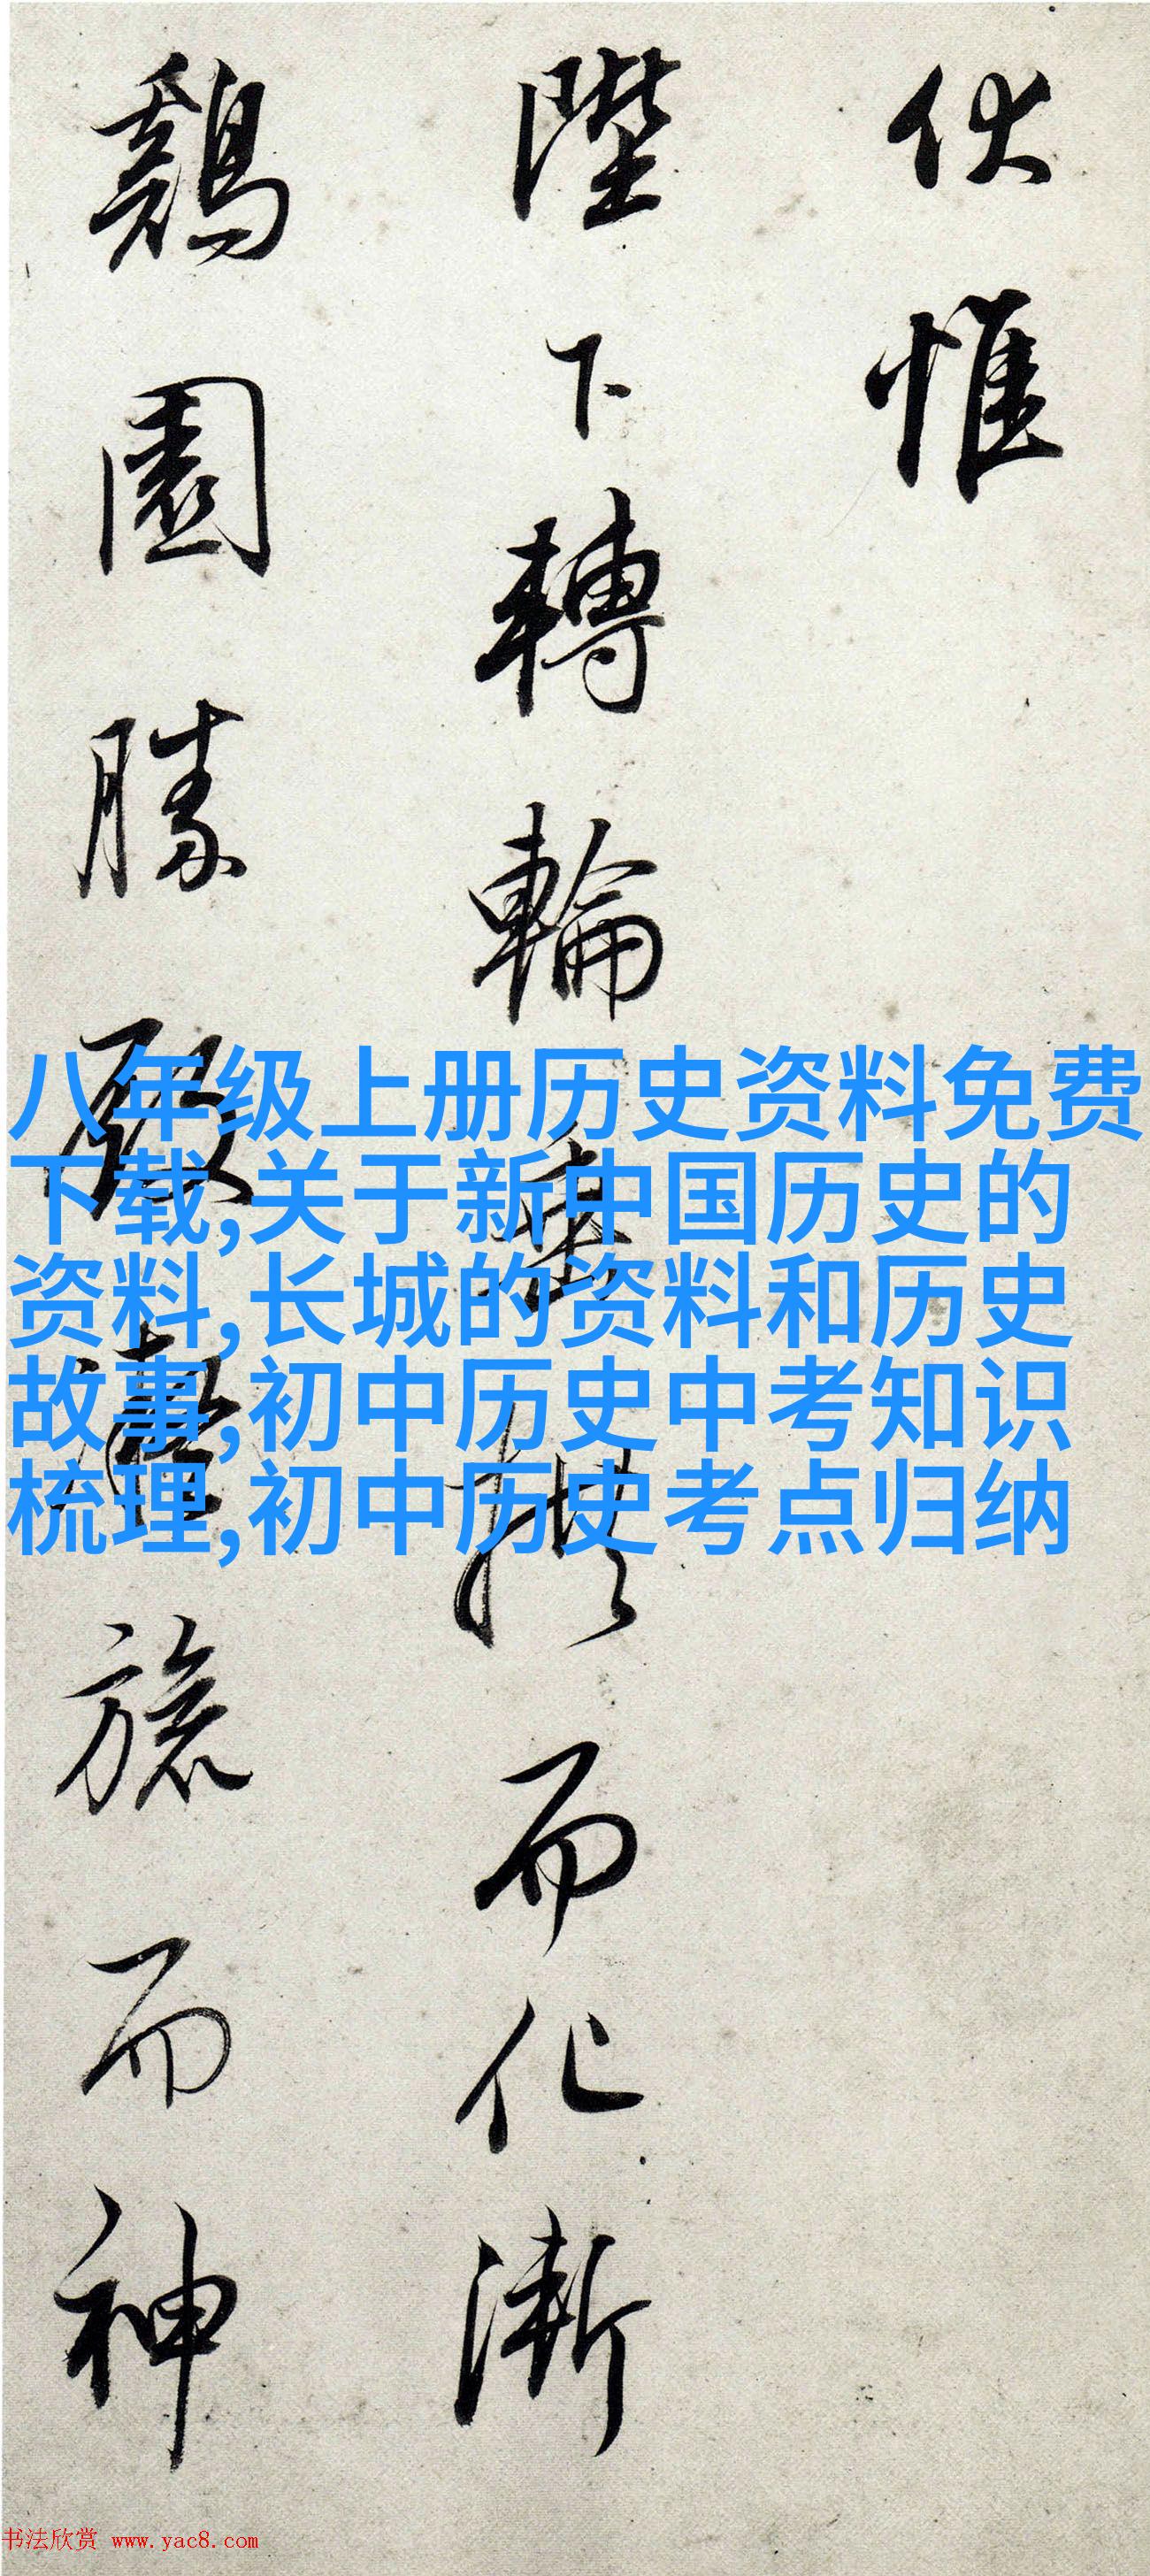 伏惟
陛下轉輪垂拱而化漸
鷄園勝殿憑旒而神
八年级上册历史资料免费
下载,关于新中国历史的
资料,长城的资料和历史
故事,初中历史中考知识
梳理,初中历史考点归纳
书法欣赏 www.yac8.com